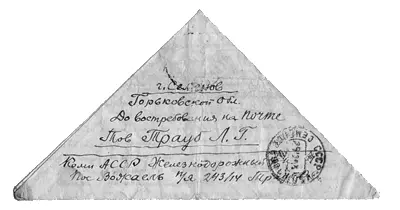 г. Семенов
Горьковской обл.
До востребования на Почте
Тов Трауб Л. Г.
Коми АССР Железнодорожный
Пос Вожаель п/я 243/14
СССР